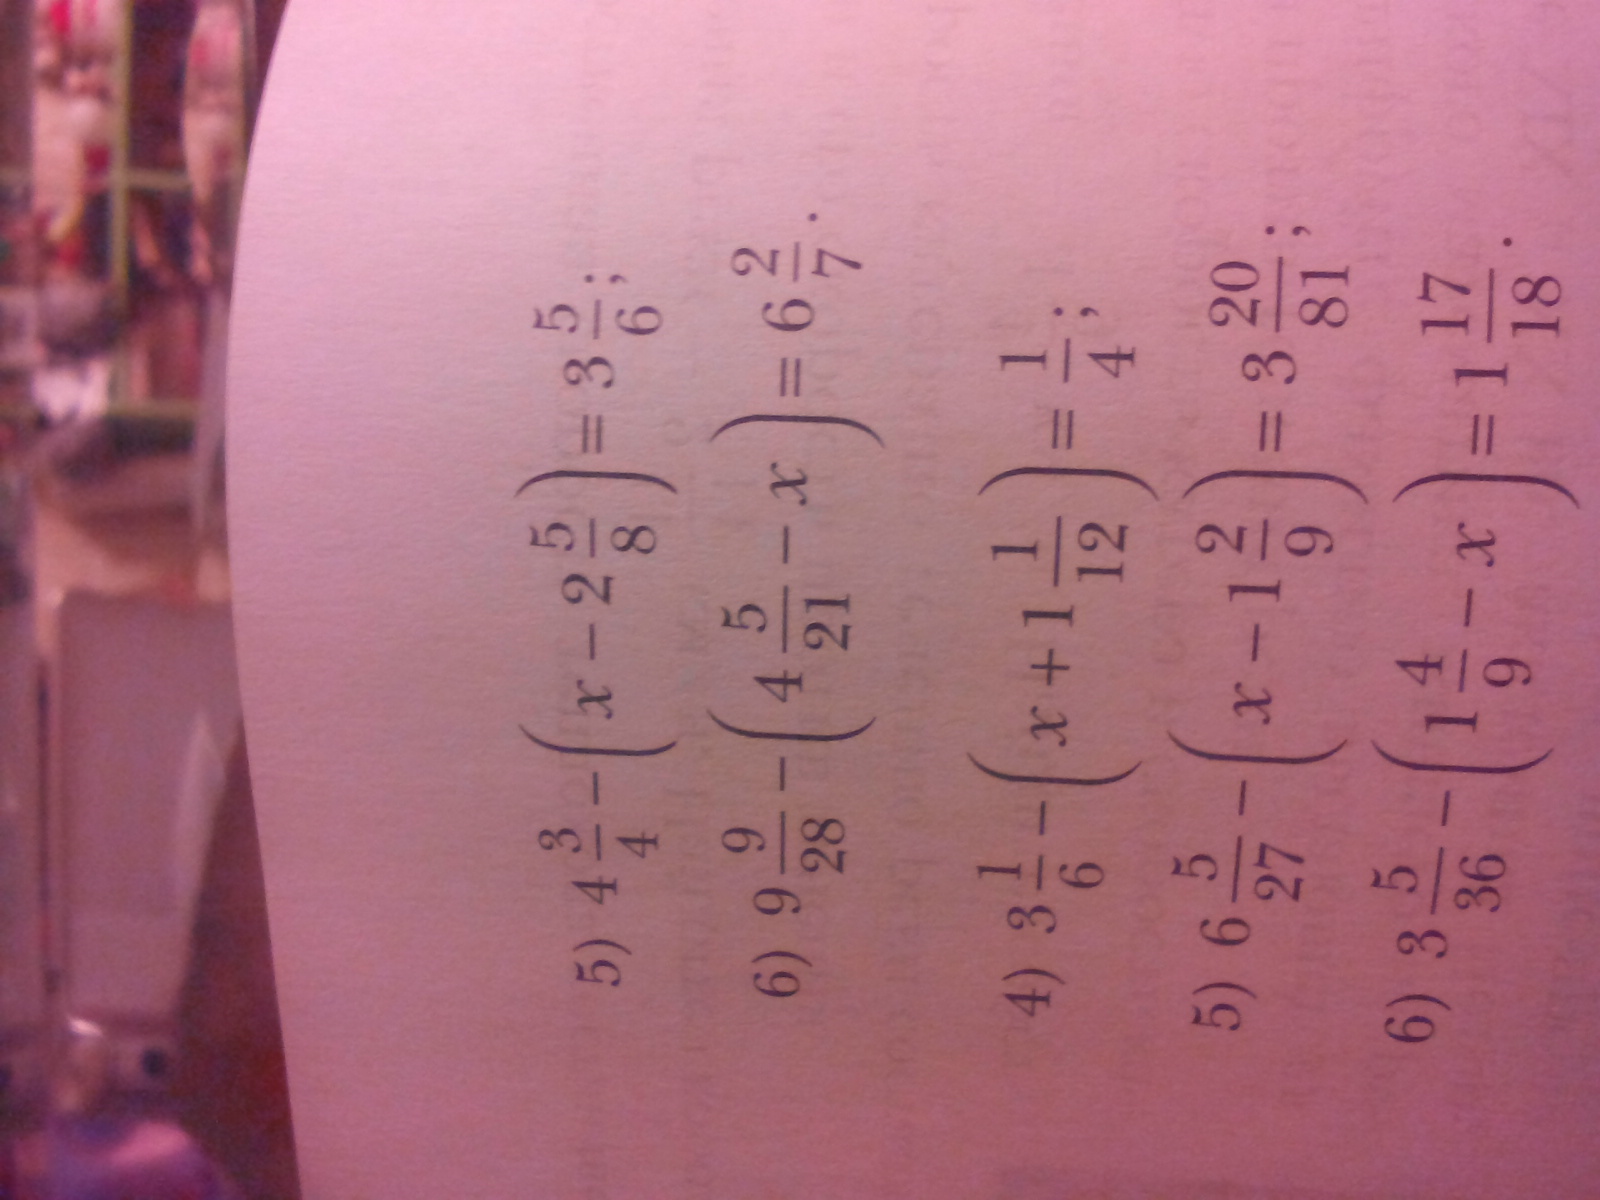 5) 4 3/4 − (x − 2 5/8) = 3 5/6;
6) 9 9/28 − (4 5/21 − x) = 6 2/7.
4) 3 1/6 − (x + 1 1/12) = 1/4;
5) 6 5/27 − (x − 1 2/9) = 3 20/81;
6) 3 5/36 − (1 4/9 − x) = 1 17/18.